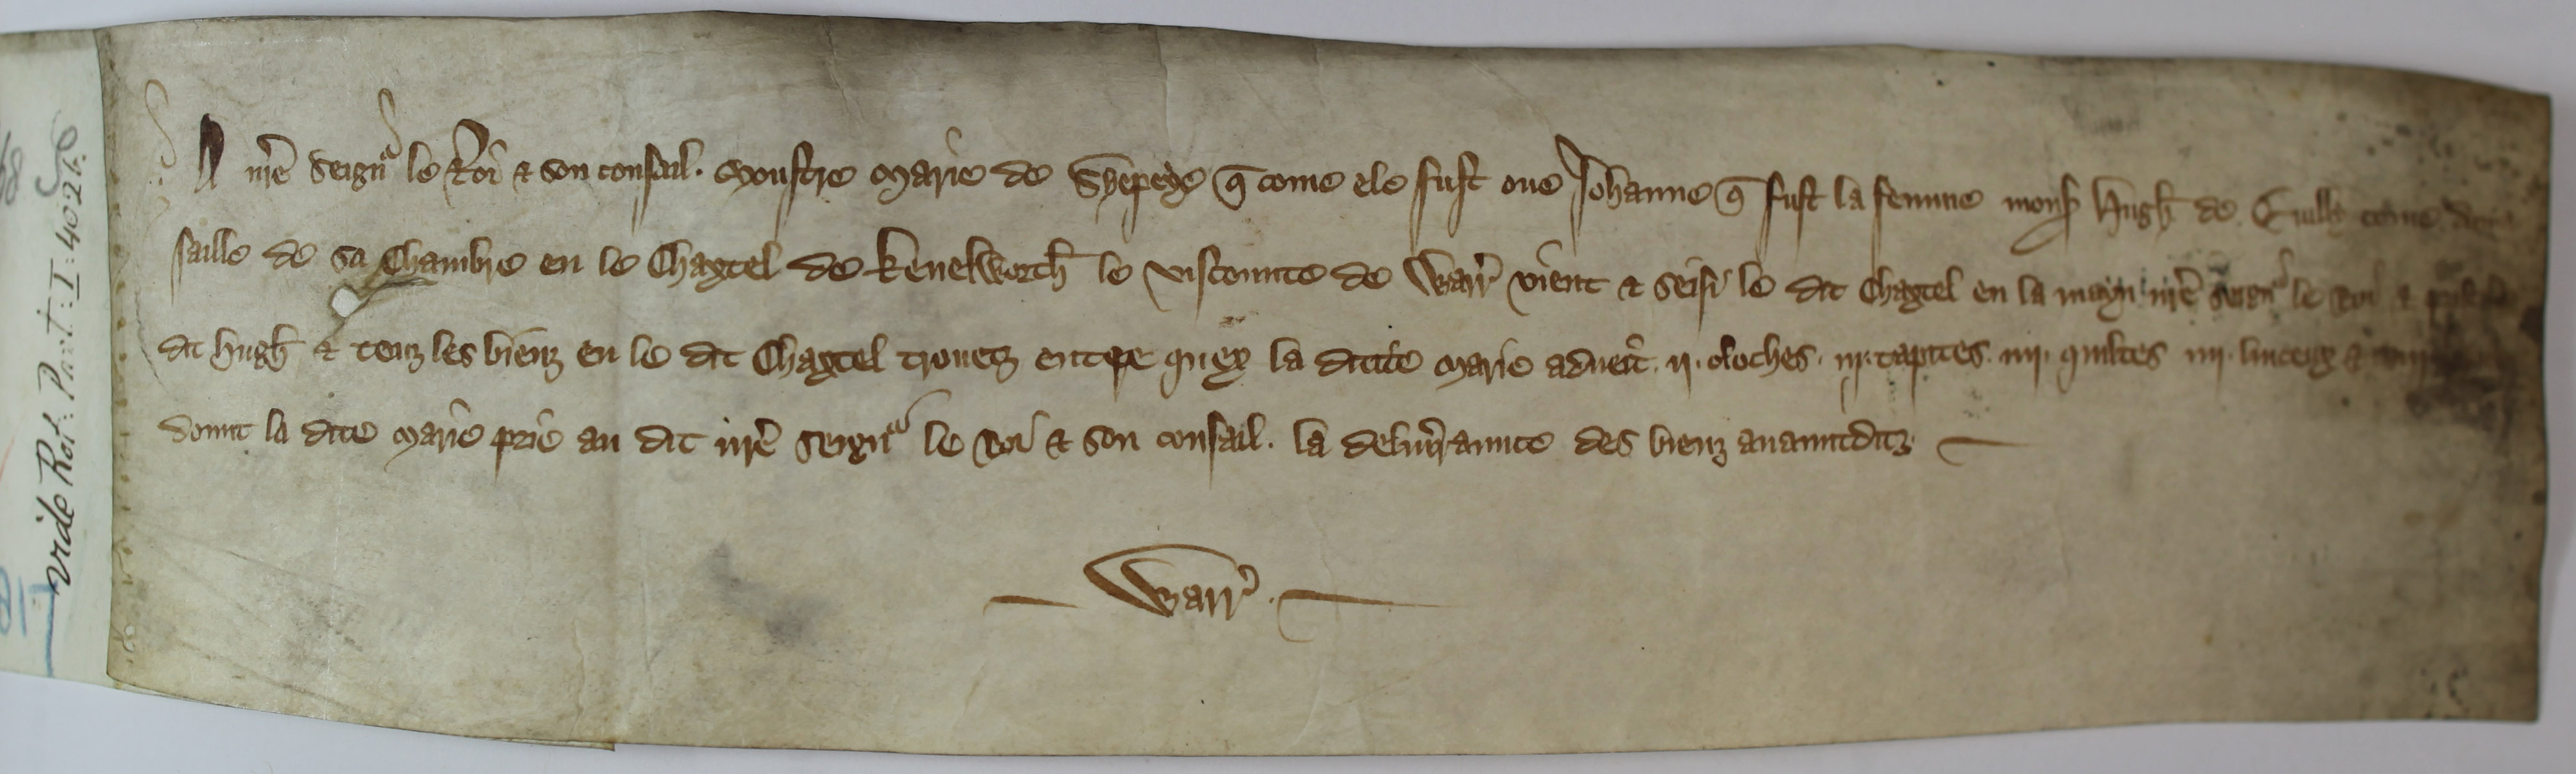 A nr̄e seignʳ le Roi & son consail. Moustre Marie de Shepeye q̄ come ele fust oue Johanne q̄ fust la femme mons' Hugh̄ de Cuilly come
faille de sa Chambre en le Chaxtel de Kenelworth̄ le viscounte de Warr' vient & seisi le dit Chaxtel en la mayn nr̄e seignʳ le Roi &
dit Hugh̄ & touz les bienz en le dit Chaxtel trouetz entre quex la ditite Marie adueit. ij. cloches. iij. tapites. iiij. quiltes iiij. linceux &
dount la dite Marie prie au dit nr̄e seignʳ le Roi & son consail. la deliu'aunce des bienz auauntditz
Warr'
Vide Rot: Parl: I: 402 b.